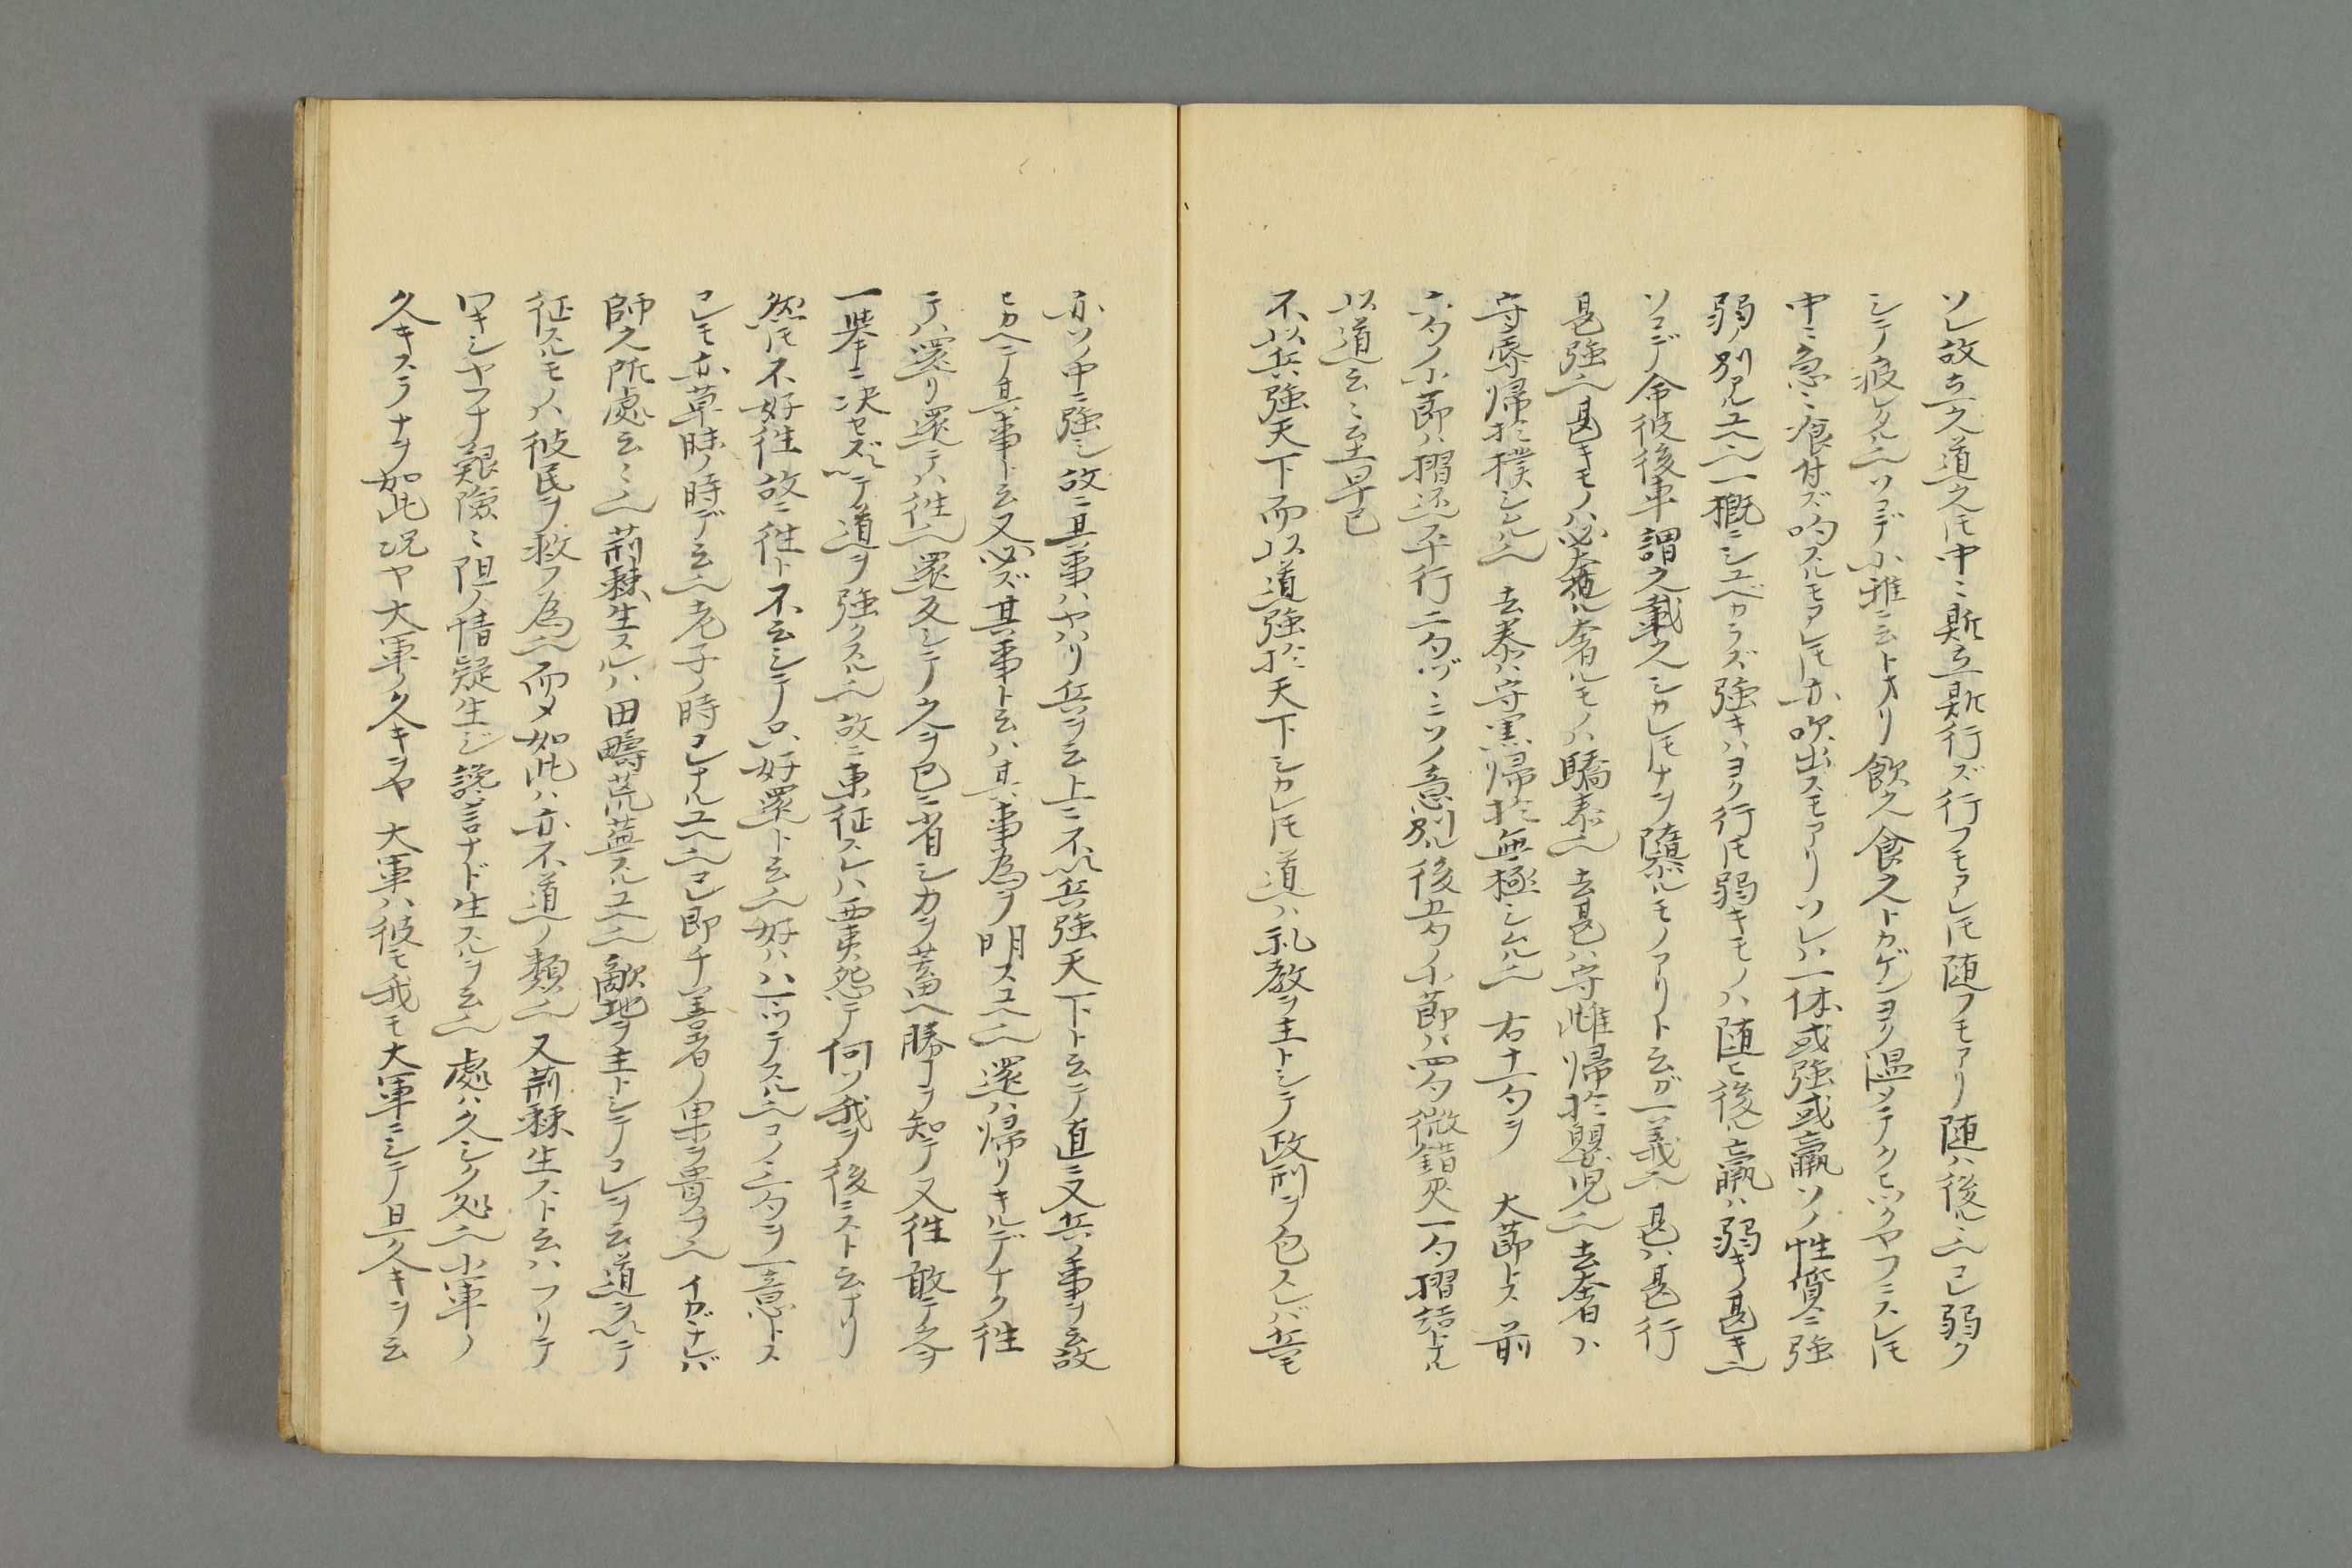 ソレ故立之道之𪜈中ニ斯立斯行ズ行フモアレ𪜈随フモアリ随ハ後ルヽ也コレ弱ク
シテ疲レタル也ソコデ小雅ニ云トオリ飲之食之トカゲンヨク温メテクヒツクヤフニスレ𪜈
中ニ急ニ痕付ズ吻スルモアレ𪜈亦吹出スモアリソレハ一体或強或羸ソノ性質ニ強
弱ノ別アルユヘ也一概ニシユベカラズ強キハヨク行𪜈弱キモノハ随ヒ後ル羸ハ弱キノ甚キ也
ソコデ命彼後車謂之載之シカレ𪜈ナヲ隳ルモノアリト云ガ一義也甚ハ甚行
甚強也甚キモノハ必奢ル奢ルモノハ驕泰也去甚ハ守雌帰於嬰児也去奢ハ
守辱帰於樸シムル也去泰ハ守黒帰於無極シムル也右十一勺ヲ 大節トス前
六勺ノ小節ハ摺还不行二勺ヅヽミツノ意別ル後五勺ノ小節ハ四勺微錯夾一勺摺詰トナル
以道云々至早已
不以兵強天下而以道強於天下シカレ𪜈道ハ礼教ヲ主トシテ政刑ヲ包スレバ兵モ
亦ソノ中ニ強シ故ニ其事ハヤハリ兵ヲ云上ニ不以兵強天下ト云テ直ニ又兵ノ事ヲ云故
ヒカヘテ其事ト云又必ズ其事ト云ハ其事為ヲ明スユヘ也還ハ帰リキルデナク往
テハ還リ還テハ往也還反シテ久ヲ包ニ省シカヲ蓄ヘ勝コヲ知テ又往敢テ久ヲ
一挙ニ决セズ以テ道ヲ強クスル也故ニ東征スレハ西夷怨テ何ソ我ヲ後ニスト云ナリ
然𪜈不好往故ニ往ト不云シテ只好還ト云也好ハハミツテスル也コノ三勺ヲ一意トス
コレモ亦草昧ノ時デ云也老子ノ時コレナルユヘ也コレ即チ善者ノ果ヲ貴フ也イカヾナレバ
師之所處云々也荊棘生スルハ田疇荒蕪スルユヘ也敵地ヲ主トシテコレヲ云道ヲ以テ
征スルモノハ彼民ヲ救フ為也而メ如此ハ亦不道ノ類也又荊棘生スト云ハフリテ
ワキシヤフナ艱険ニ阻ノ情疑生ジ讒言ナド生スルヲ云也處ハ久シク処也小軍ノ
久キスラナヲ如此况ヤ大軍ノ久キヲヤ 大軍ハ彼モ我モ大軍ニシテ且久キヲ云